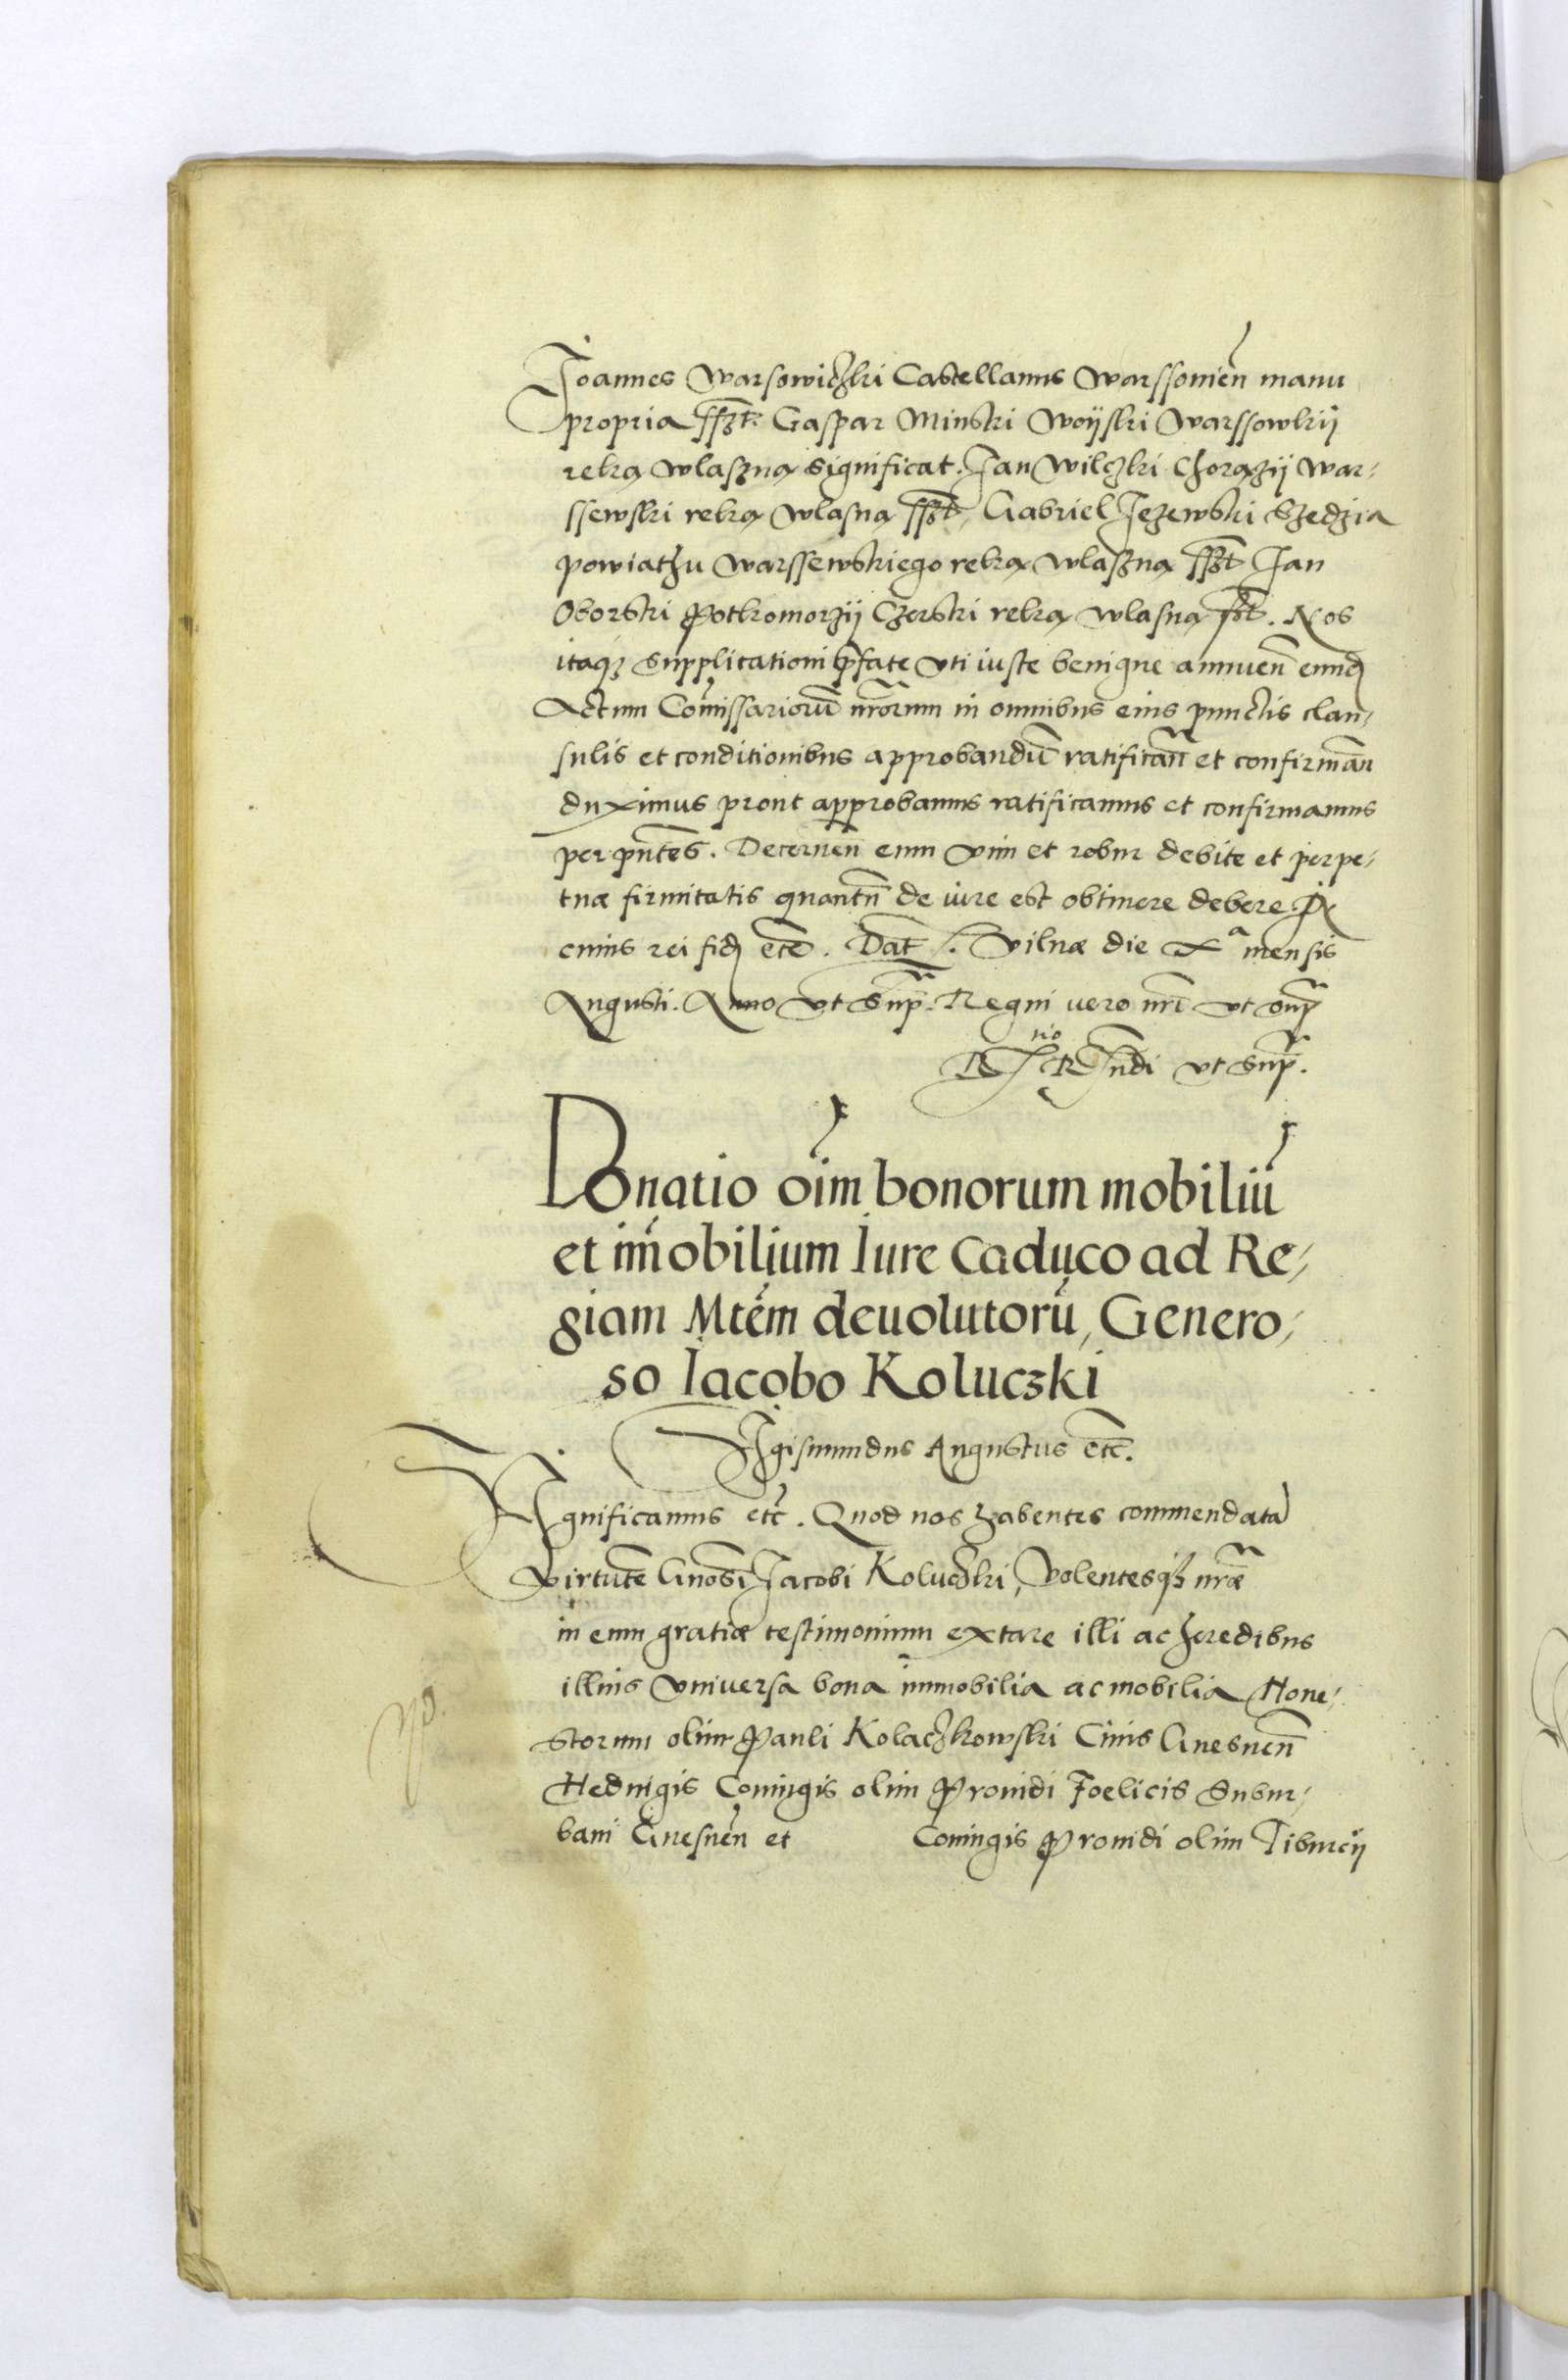 Joannes Warsowiczki Castellanus Warssouieñ manu
propria sszt. Gaspar Minski Woÿski Warssowskÿ
reką wlaszną significat. Jan Wilczki Chorązÿ War-
ssewski reką wlasną sszt, Gabriel Jezewski Szedzia
powiathu Warssewskiego reką wlaszną sszt Jan
Oborski Potkomorzÿ Czerski reką wlasną sszt. Nos
itaqȝ supplicationi p̃fate vti iuste benigne annueñ eund
Actum Com̃issariorũ nr̃orum in omnibus eius punctis clau-
sulis et conditionibus approbandũ ratificañ et confirmañ
duximus prout approbamus ratificamus et confirmamus
per pñtes. Decerneñ eum vim et robur debite et perpe-
tuæ firmitatis quantũ de iure est obtinere debere. In
cuius rei fid etc̃. Dat̃ /. Vilnæ die Xª mensis
Augusti. Anno vt sup̃. Regni uero nrĩ vt sup̃
Rndi vt sup̃.
Donatio oĩm bonorum mobiliũ
et im̃obilium Iure Caduco ad Re-
giam Mtẽm deuolutorũ, Genero-
so Iacobo Koluczki
Sigismundus Augustus etc̃.
Significamus etc̃. Quod nos habentes commendatã
Virtutẽ Gnosĩ Jacobi Koluczki, Volentesqȝ nrãe
in eum gratiæ testimonium extare illi ac heredibus
illius vniuersa bona immobilia ac mobilia Hone-
storum olim Pauli Kolaczkowski Ciuis Gnesneñ
Heduigis Coniugis olim Prouidi Foelicis Subur-
bani Gnesneñ et Coniugis Prouidi olim Tiburcÿ